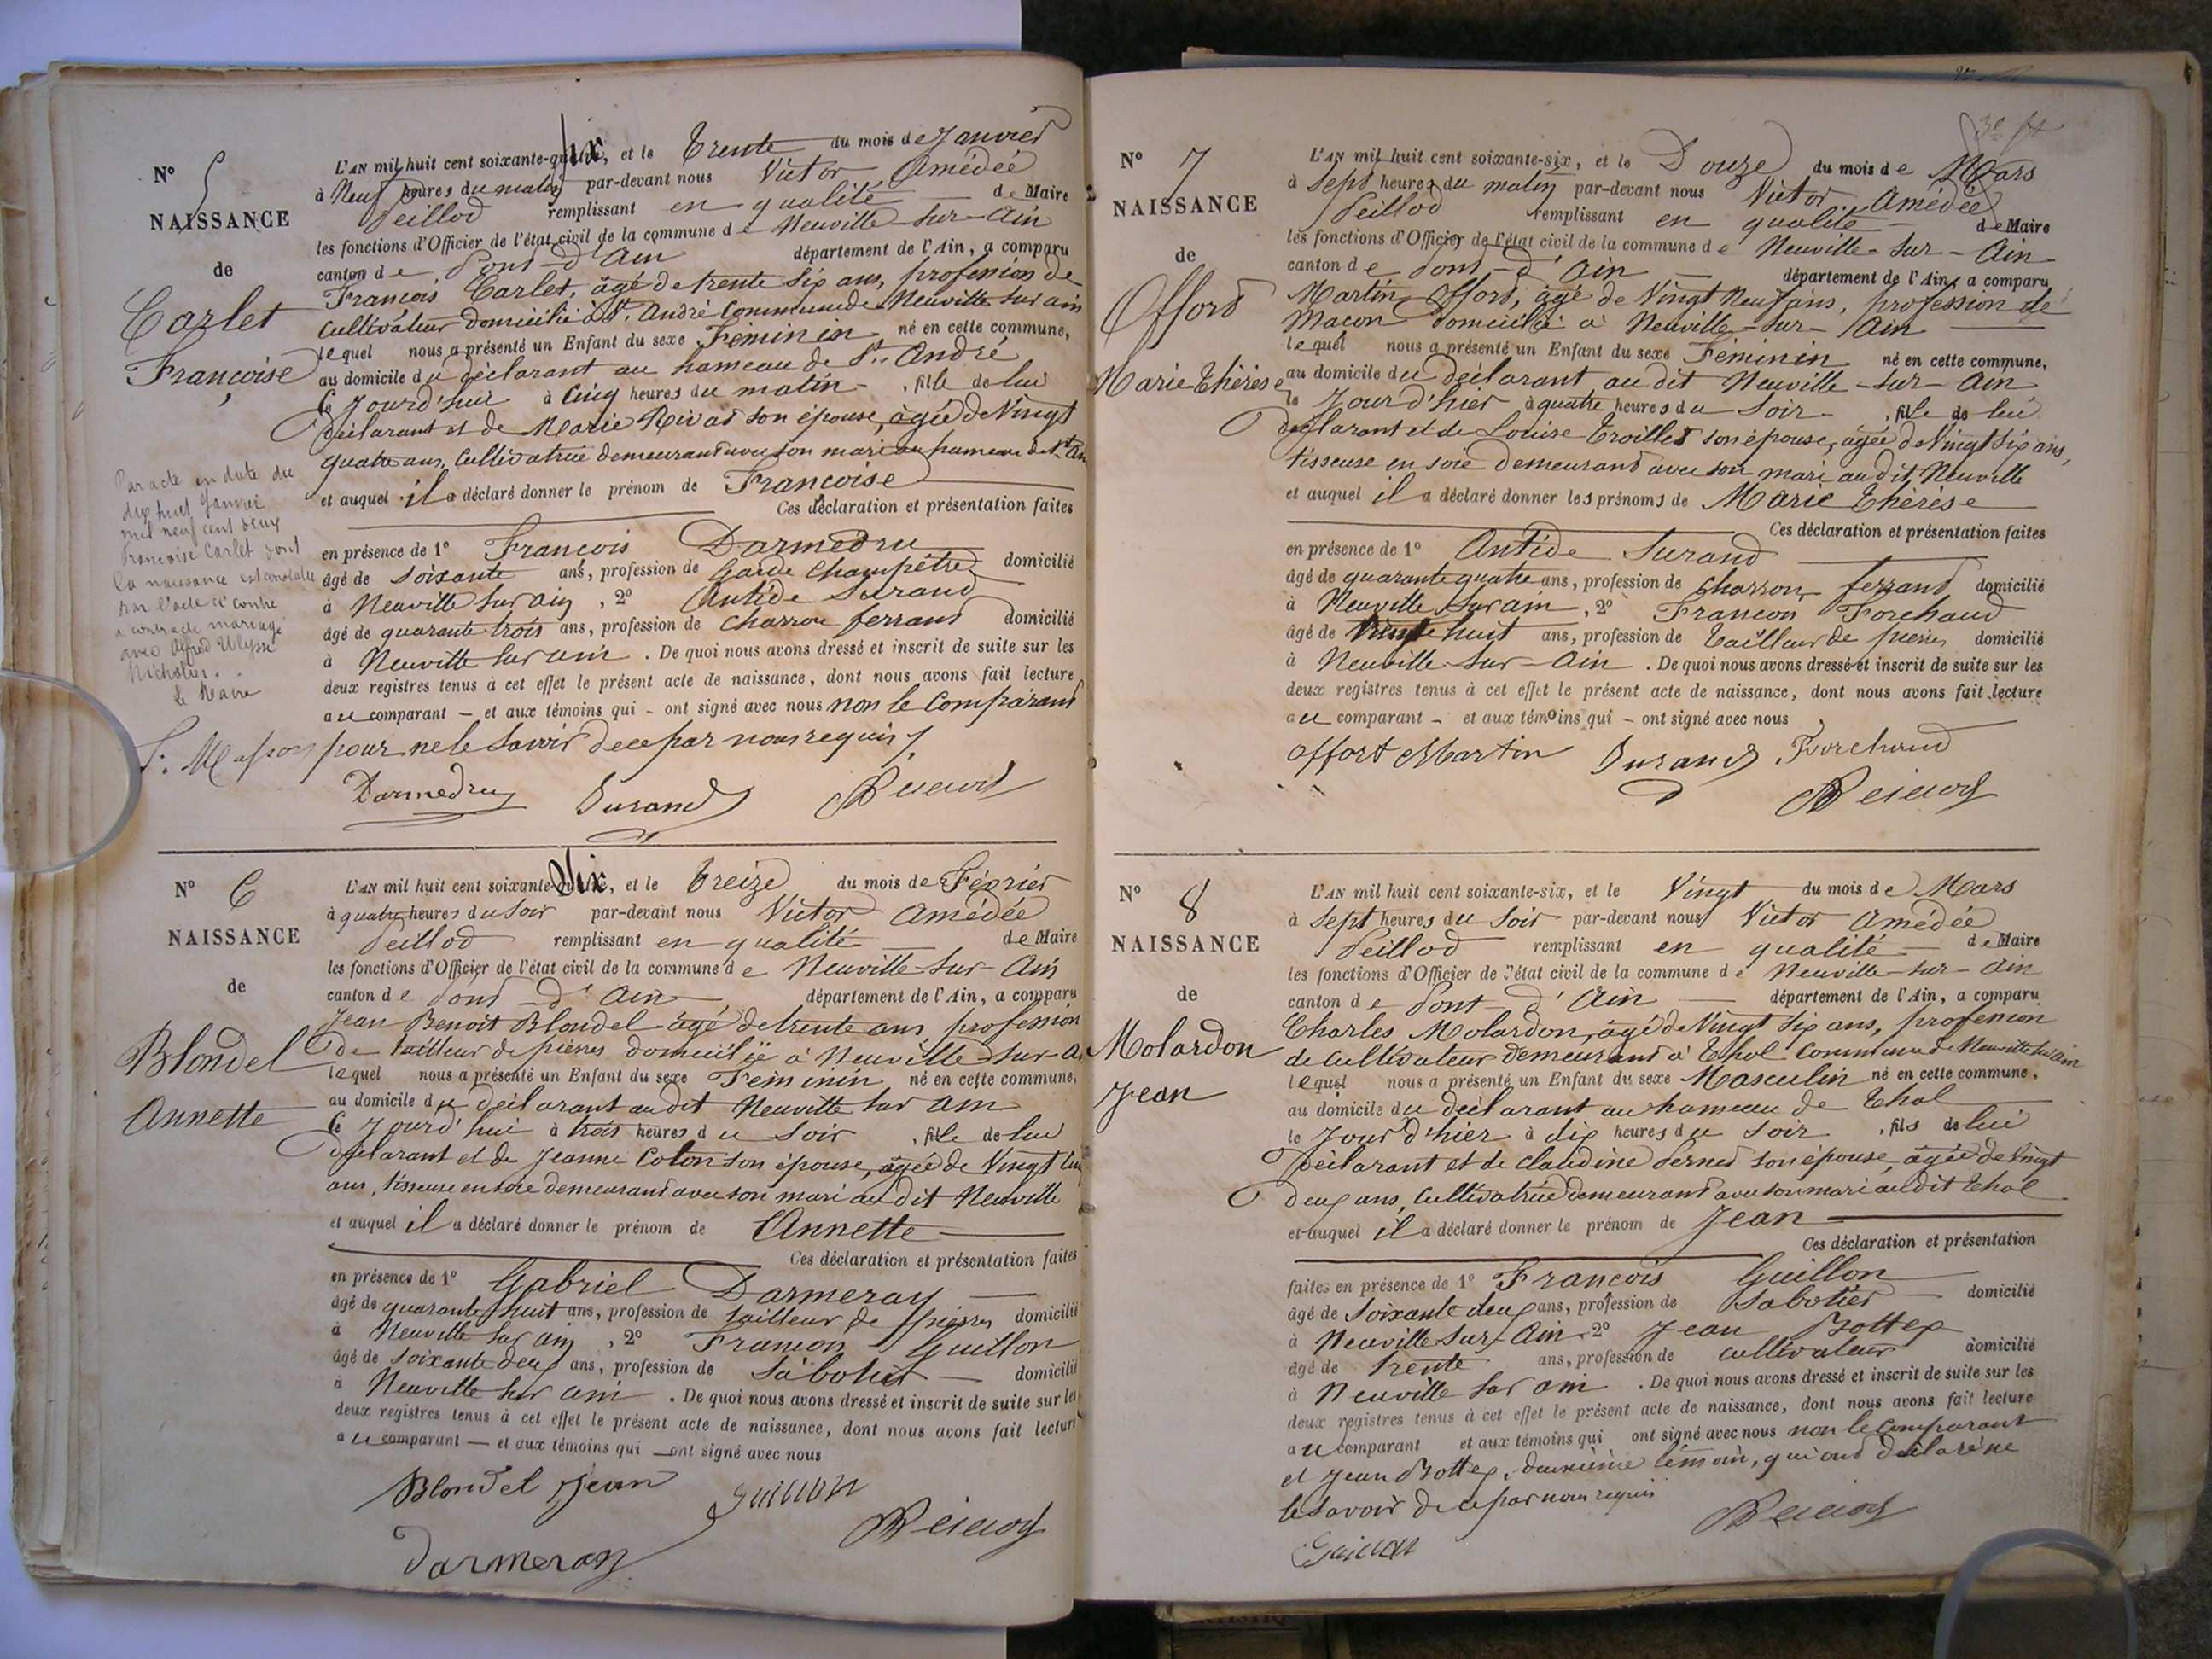 N° 5
NAISSANCE
de
Carlet
Françoise
L'AN mil huit cent soixante-six, et le Trente du mois de Janvier
à Neuf heures du matin par-devant nous Victor Amédée
Peillod remplissant en qualité de Maire
les fonctions d'Officier de l'état civil de la commune de Neuville-sur-Ain
canton de Pont-d'Ain département de l'Ain, a comparu
François Carlet, âgé de trente six ans, profession de
Cultivateur domicilié à St. André Commune de Neuville sur ain
lequel nous a présenté un Enfant du sexe Féminin né en cette commune,
au domicile du déclarant au hameau de St. André
le Jourd'hui à Cinq heures du matin, fille de lui
déclarant et de Marie son épouse, âgée de Vingt
quatre ans, Cultivatrice demeurant avec son mari au hameau de St. An
et auquel il a déclaré donner le prénom de Françoise
Ces déclaration et présentation faites
en présence de 1° François Darmedru
âgé de soixante ans, profession de Garde Champêtre domicilié
à Neuville sur ain, 2° Antide Durand
âgé de quarante trois ans, profession de Charron ferrant domicilié
à Neuville sur ain. De quoi nous avons dressé et inscrit de suite sur les
deux registres tenus à cet effet le présent acte de naissance, dont nous avons fait lecture
au comparant – et aux témoins qui – ont signé avec nous non le Comparant
pour ne le Savoir de ce par nous requis
Darmedru Durand Peillod
Par acte en date du
dix huit Janvier
mil neuf cent deux
Françoise Carlet dont
la naissance est constatée
par l'acte ci contre
a contracté mariage
avec Alfred Ulysse
le Maire
N° 6
NAISSANCE
de
Blondel
Annette
L'AN mil huit cent soixante-six, et le Treize du mois de Février
à quatre heures du Soir par-devant nous Victor Amédée
Peillod remplissant en qualité de Maire
les fonctions d'Officier de l'état civil de la commune de Neuville-sur-Ain
canton de Pont-d'Ain département de l'Ain, a comparu
Jean Benoit Blondel âgé de trente ans, profession
de tailleur de pierres domicilié à Neuville-sur-A
lequel nous a présenté un Enfant du sexe Féminin né en cette commune,
au domicile du déclarant au dit Neuville sur ain
le Jourd'hui à trois heures du Soir, fille de lui
déclarant et de Jeanne Colon son épouse, âgée de Vingt
ans, tisseuse en soie demeurant avec son mari au dit Neuville
et auquel il a déclaré donner le prénom de Annette
Ces déclaration et présentation faites
en présence de 1° Gabriel Darmeray
âgé de quarante huit ans, profession de tailleur de pierres domicilié
à Neuville sur ain, 2° François Guillon
âgé de soixante deux ans, profession de Sabotier domicilié
à Neuville sur ain. De quoi nous avons dressé et inscrit de suite sur les
deux registres tenus à cet effet le présent acte de naissance, dont nous avons fait lecture
au comparant – et aux témoins qui – ont signé avec nous
Blondel Jean Guillon
Peillod
Darmeray
N° 7
NAISSANCE
de
Offord
Marie Thérèse
L'AN mil huit cent soixante-six, et le Douze du mois de Mars
à Sept heures du matin par-devant nous Victor Amédée
Peillod remplissant en qualité de Maire
les fonctions d'Officier de l'état civil de la commune de Neuville-sur-Ain
canton de Pont-d'Ain département de l'Ain, a comparu
Martin Offord, âgé de Vingt Neuf ans, profession de
Macon domicilié à Neuville-sur-Ain
lequel nous a présenté un Enfant du sexe Féminin né en cette commune,
au domicile du déclarant au dit Neuville-sur-Ain
le Jour d'hier à quatre heures du Soir, fille de lui
déclarant et de Louise Troillet son épouse, âgée de Vingt Six ans,
tisseuse en soie demeurant avec son mari au dit Neuville
et auquel il a déclaré donner les prénoms de Marie Thérèse
Ces déclaration et présentation faites
en présence de 1° Antide Durand
âgé de quarante quatre ans, profession de Charron ferrant domicilié
à Neuville sur ain, 2° François Forchaud
âgé de trente huit ans, profession de tailleur de pierres domicilié
à Neuville-sur-Ain. De quoi nous avons dressé et inscrit de suite sur les
deux registres tenus à cet effet le présent acte de naissance, dont nous avons fait lecture
au comparant – et aux témoins qui – ont signé avec nous
Offort Martin Durand Forchaud
Peillod
N° 8
NAISSANCE
de
Molardon
Jean
L'AN mil huit cent soixante-six, et le Vingt du mois de Mars
à Sept heures du Soir par-devant nous Victor Amédée
Peillod remplissant en qualité de Maire
les fonctions d'Officier de l'état civil de la commune de Neuville-sur-Ain
canton de Pont-d'Ain département de l'Ain, a comparu
Charles Molardon, âgé de Vingt Six ans, profession
de Cultivateur demeurant à Thol Commune de Neuville sur ain
lequel nous a présenté un Enfant du sexe Masculin né en cette commune,
au domicile du déclarant au hameau de Thol
le Jour d'hier à dix heures du Soir, fils de lui
déclarant et de Claudine son épouse, âgée de Vingt
deux ans, Cultivatrice demeurant avec son mari au dit Thol
et auquel il a déclaré donner le prénom de Jean
Ces déclaration et présentation
faites en présence de 1° François Guillon
âgé de Soixante deux ans, profession de Sabotier domicilié
à Neuville sur Ain 2° Jean Bottex
âgé de trente ans, profession de cultivateur domicilié
à Neuville sur ain. De quoi nous avons dressé et inscrit de suite sur les
deux registres tenus à cet effet le présent acte de naissance, dont nous avons fait lecture
au comparant et aux témoins qui ont signé avec nous non le Comparant
et Jean Bottex, deuxième témoin, qui ont déclaré ne
le savoir de ce par nous requis
Guillon Peillod